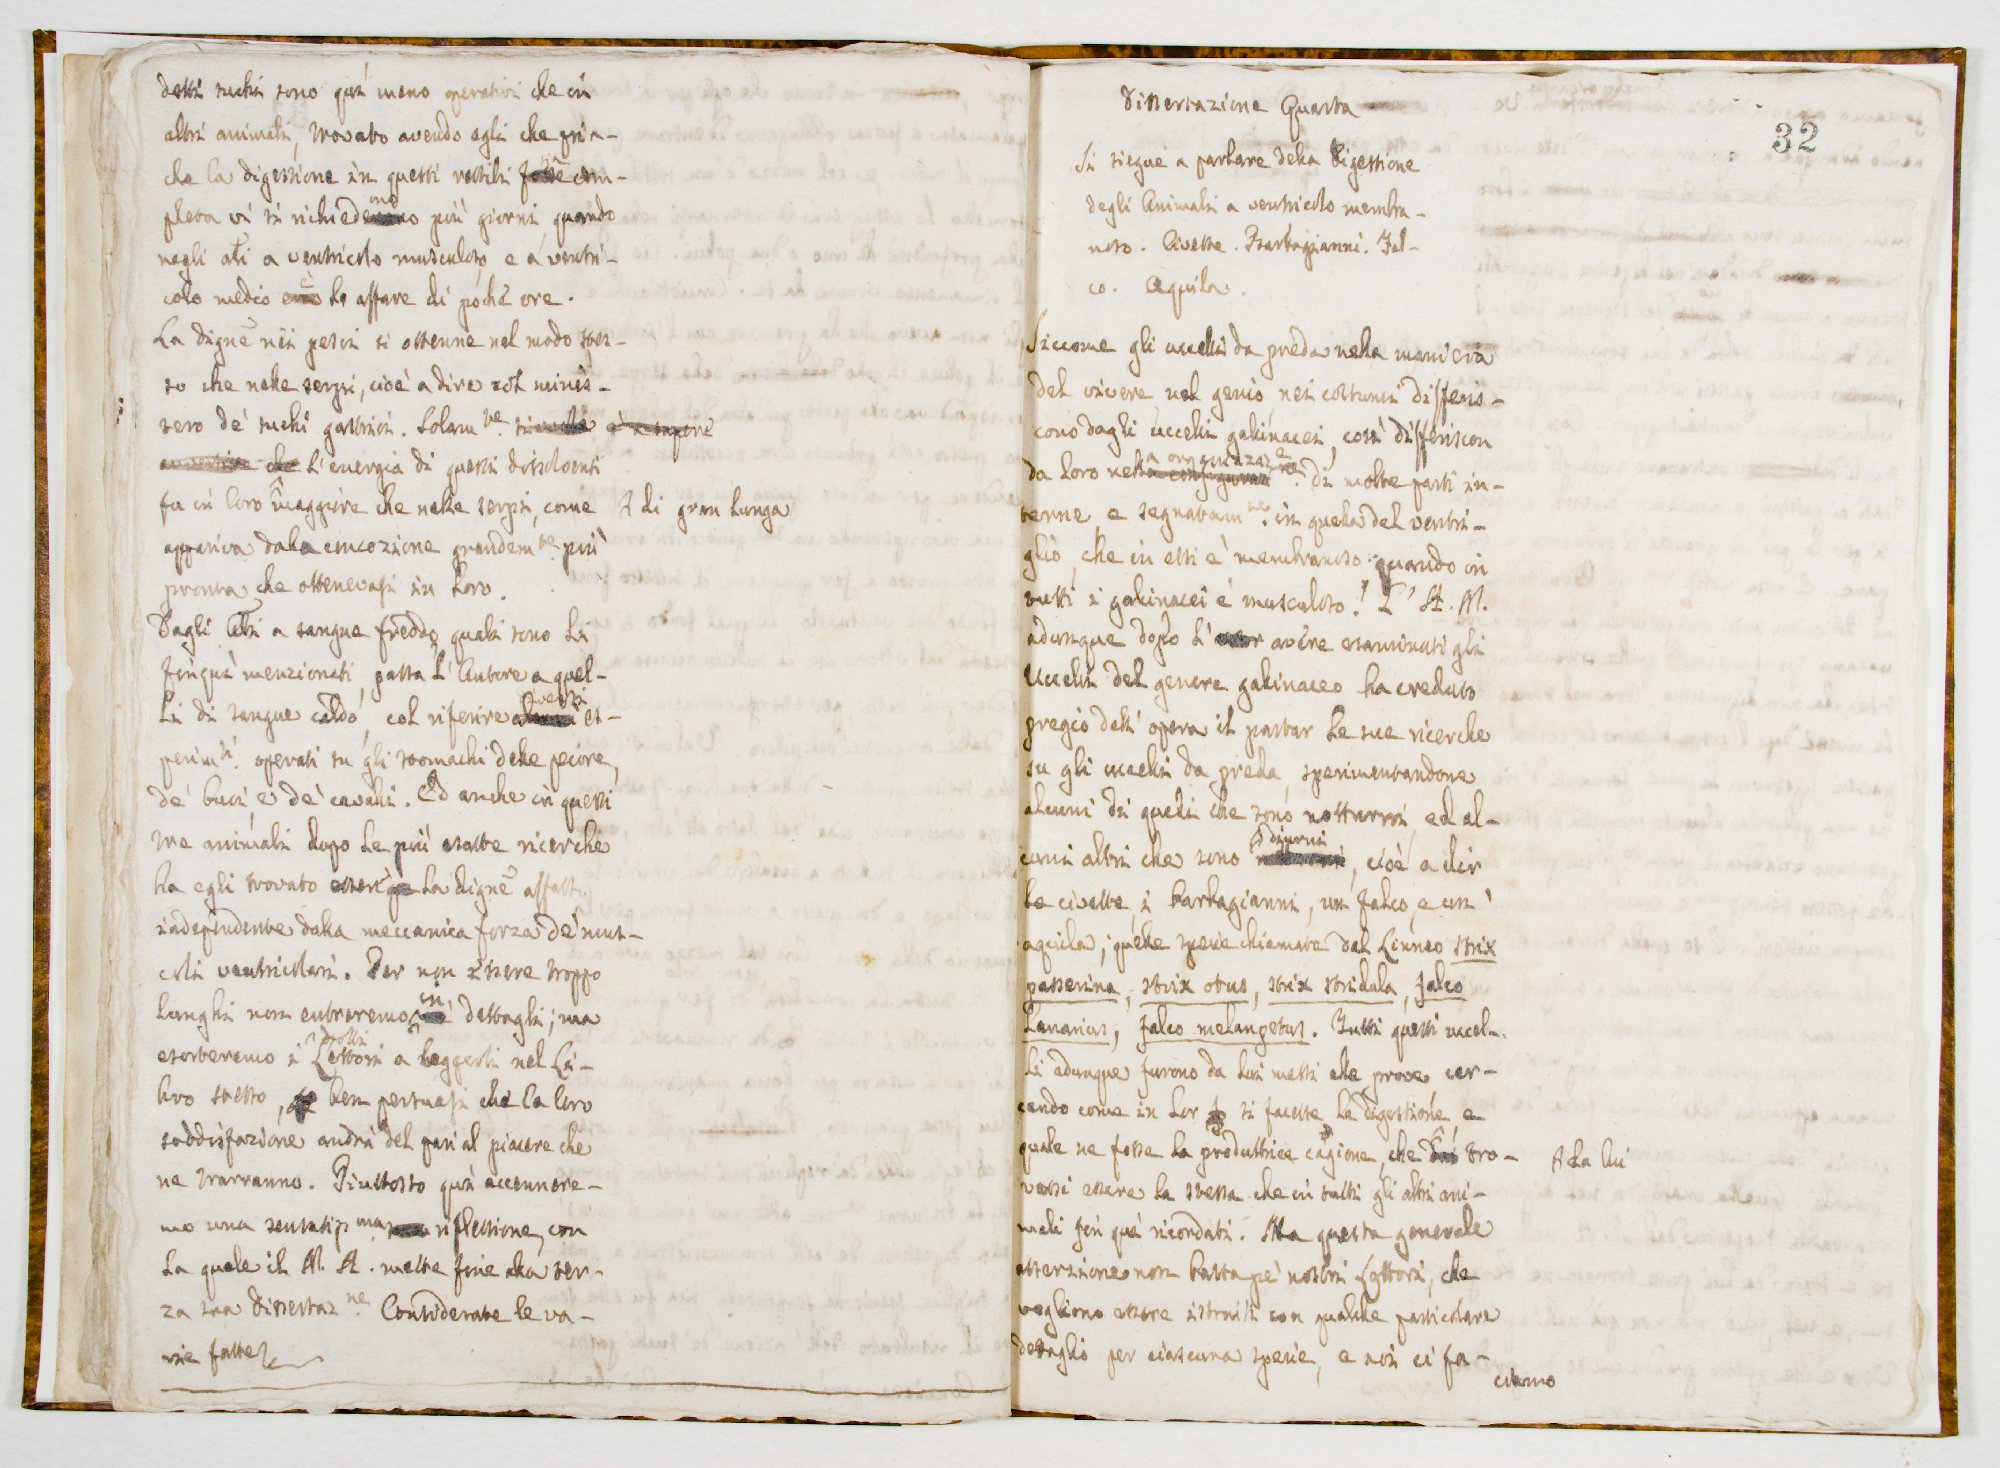 detti succhi sono qui meno operativi che in
altri animali, trovato avendo egli che pria-
che la digestione in questi rettili sia com-
pleta vi si richiedono più giorni quando
negli ali a ventricolo musculoso e a ventri-
colo medio è la affare di poche ore.
La digne nei pesci si ottenne nel modo stes-
so che nelle serpi, cioè a dire col minis-
tero de' succhi gastrici. Solam.te
L'energia di questi dissolventi
fu in loro ^ maggiore che nelle serpi, come
A di gran lunga
appariva dalla concozione grandem.te più
pronta che ottenevasi in loro.
Dagli Ali a sangue freddo quali sono li
finquì menzionati, passa L'Autore a quel-
li di sangue caldo, col riferire diversi es-
perim.ti operati su gli stomachi delle pecore,
de' buoi, e de' cavalli. Ed anche in questi
tre animali dopo le più esatte ricerche
ha egli trovato essere la digne affatto
independente dalla meccanica forza de' mus-
coli ventricolari. Per non essere troppo
lunghi non entraremo in dettagli; ma
esorteremo i nostri Lettori a leggerli nel Li-
bro stesso, ben persuasi che la loro
soddisfazione andrà del pari al piacere che
ne trarranno. Piuttosto quì accennere-
mo una sensatiss.ma riflessione, con
la quale il N. A. mette fine alla ter-
za sua Dissertaz.ne Considerate le va-
rie fatte
Dissertazione Quarta
32
Si siegue a parlare della Digestione
degli Animali a ventricolo membra-
noso. Civette. Barbagianni. Fal-
co. Aquila.
Siccome gli uccelli da preda nella maniera
del vivere nel genio nei costumi differis-
cono dagli uccelli gallinacei, così differiscon
da loro nella organizzaz.e di molte parti in-
terne, e segnatam.te in quella del ventri-
glio, che in essi è membranoso quando in
tutti i gallinacei è musculoso. L' A. N.
adunque dopo l' avere esaminati gli
Uccelli del genere gallinaceo ha creduto
pregio dell' opera il portar le sue ricerche
su gli uccelli da preda, sperimentandone
alcuni di quelli che sono notturni, ed al-
cuni altri che sono diurni, cioè a dir
le civette, i barbagianni, un falco, e un'
aquila, quelle specie chiamate dal Linneo strix
passerina, strix otus, strix stridula, falco
Lanarius, falco melanaetus. Tutti questi uccel-
li adunque furono da lui messi alle prove cer-
cando come in lor si facesse la digestione, e
quale ne fosse la produttrice cagione, che ^ tro-
A da lui
vossi essere la stessa che in tutti gli altri ani-
mali fin quà ricordati. Ma questa generale
asserzione non basta pe' nostri Lettori, che
vogliono essere istruiti con qualche particolare
dettaglio per ciascuna specie, e noi ci fa-
ciamo